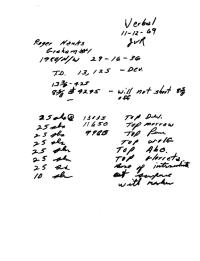 Verbal
11-12-69
JVR
Roger Hanks
Graham #1
1980/N/W 29-16-36
T.D. 13,125 - Dev.
13 3/8 - 425
8 5/8 @ 4295 - will not shoot off
25 sks @ 13035 Top Dev.
25 sks 11650 Top morrow
25 sks 9980 Top Penn
25 sks Top Wolfc
25 sks Top Abo.
25 sks Top Glorieta
25 sks base of intermediate
10 sks at surface
with marker